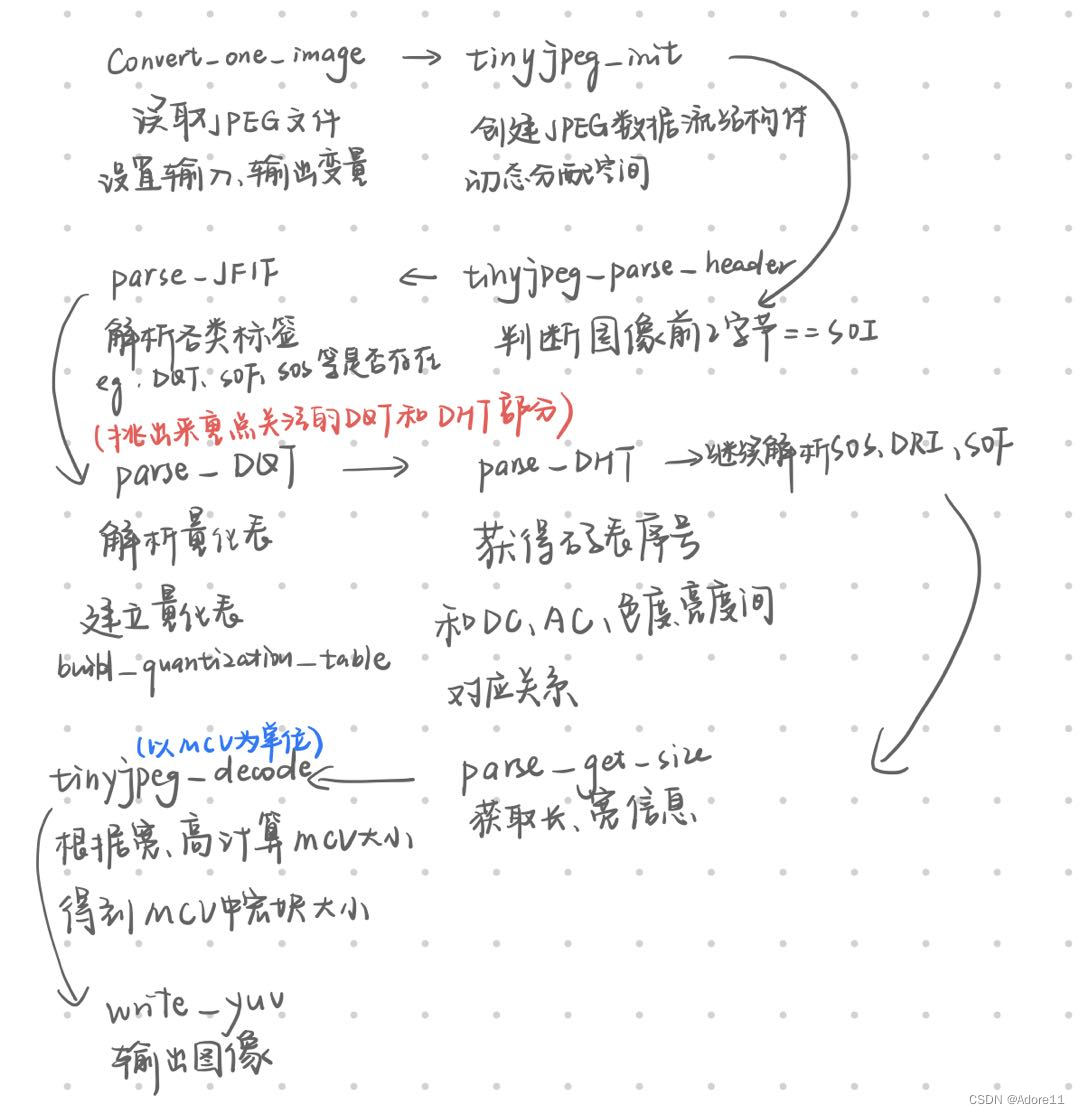 Convert_one_image → tinyjpeg_init
读取JPEG文件
设置输入、输出变量
创建JPEG数据流结构体
动态分配空间
parse_JFIF ← tinyjpeg_parse_header
解析各类标签
eg：DQT、SOF、SOS等是否存在
判断图像前2字节==SOI
(挑出来重点关注的DQT和DHT部分)
parse_DQT → parse_DHT → 继续解析SOS、DRI、SOF
解析量化表
建立量化表
build_quantization_table
获得码表序号
和DC、AC、色度、亮度间
对应关系
parse_get_size
获取长、宽信息
(以MCV为单位)
tinyjpeg_decode ←
根据宽、高计算MCV大小
得到MCV中宏块大小
write_yuv
输出图像
CSDN @Adore11